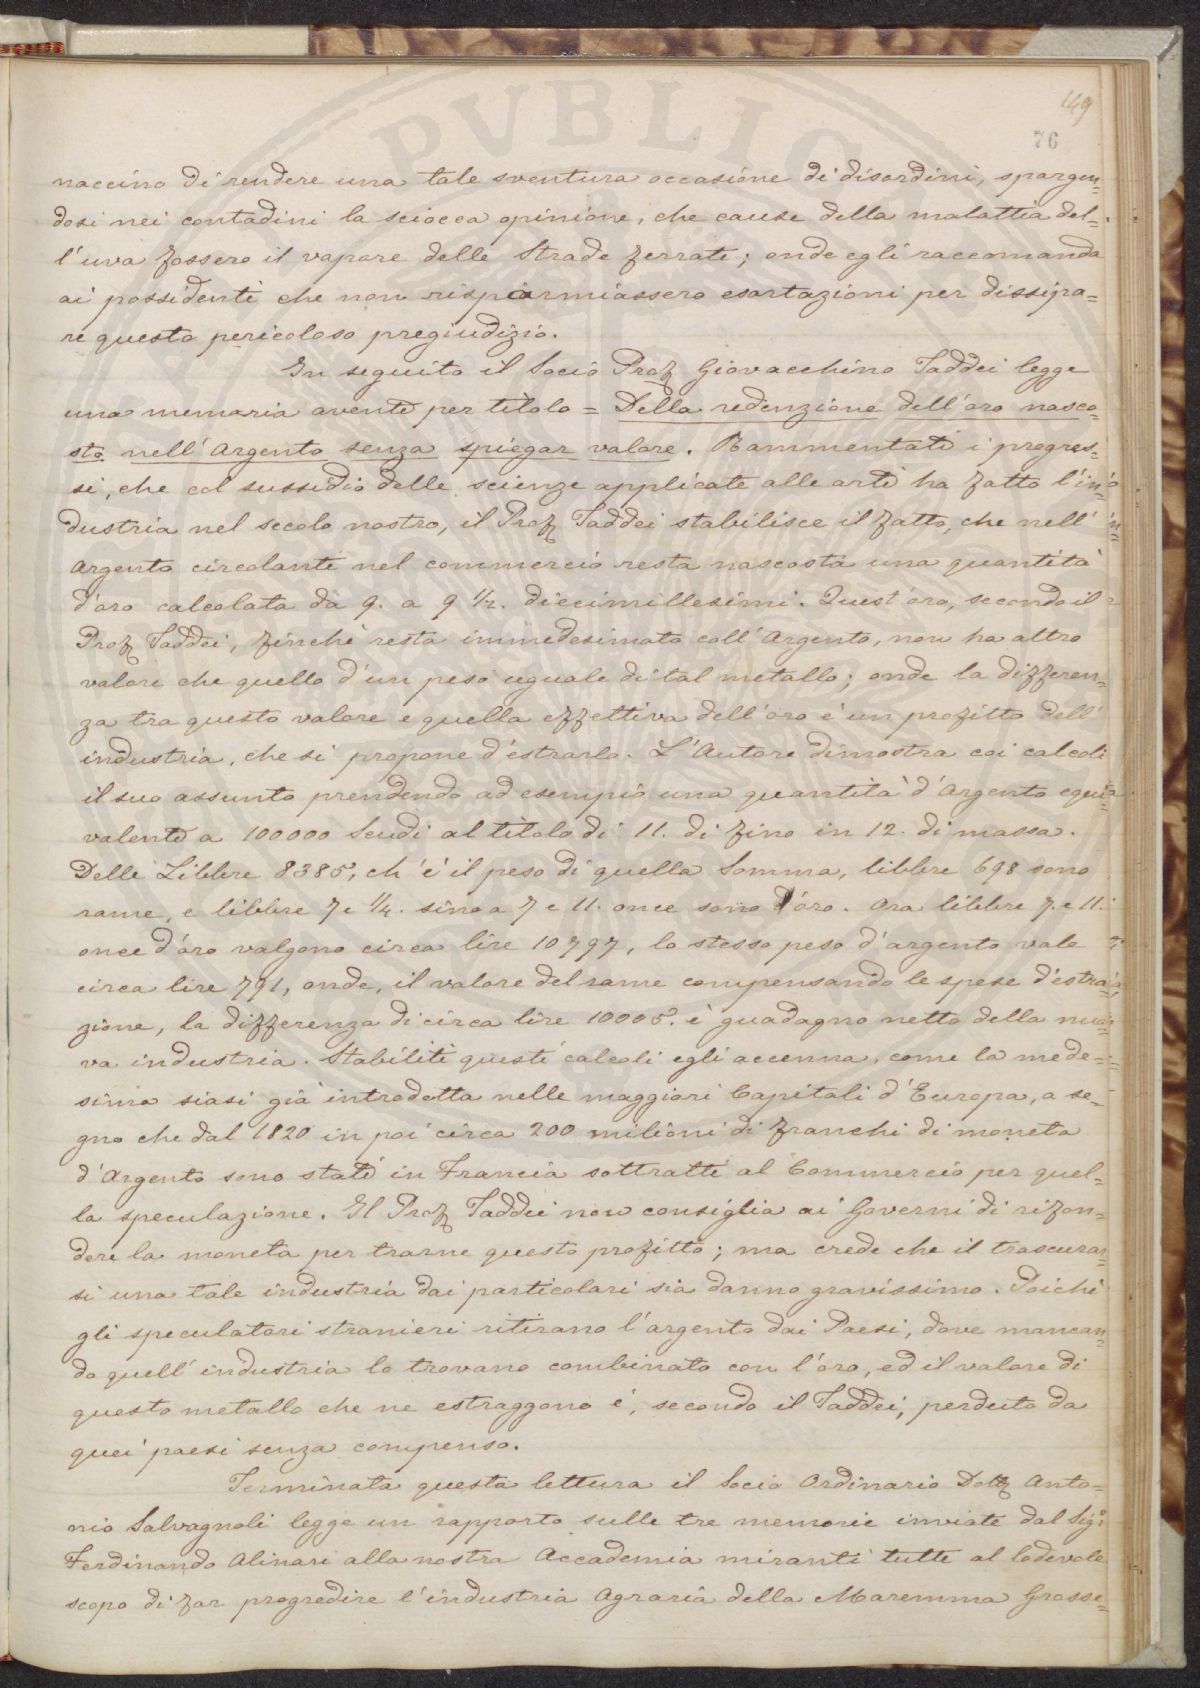 149
76
naccino di rendere una tale sventura occasione di disordini, spargen=
dosi nei contadini la sciocca opinione, che cause della malattia del=
l'uva fossero il vapore delle Strade ferrate; onde egli raccomanda
ai possidenti che non risparmiassero esortazioni per dissipa=
re questo pericoloso pregiudizio.
In seguito il Socio Prof Giovacchino Taddei legge
una memoria avente per titolo = Della redenzione dell'oro nasco=
sto nell'Argento senza spiegar valore. Rammentati i progres=
si, che col sussidio delle scienze applicate alle arti ha fatto l'in=
dustria nel secolo nostro, il Prof Taddei stabilisce il fatto, che nell'
Argento circolante nel commercio resta nascosta una quantità
d'oro calcolata da 9. a 9 1/2. diecimillesimi. Quest'oro, secondo il
Prof Taddei, finchè resta immedesimato coll'Argento, non ha altro
valore che quello d'un peso uguale di tal metallo; onde la differen=
za tra questo valore e quella effettiva dell'oro è un profitto dell'
industria, che si propone d'estrarlo. L'Autore dimostra coi calcoli
il suo assunto prendendo ad esempio una quantità d'Argento equi=
valente a 100000 Scudi al titolo di 11. di fino in 12. di massa.
Delle Libbre 8385, ch'è il peso di quella Somma, libbre 698 sono
rame, e libbre 7 e 1/4. sino a 7 e 11. once sono d'oro. Ora libbre 7. e 11.
once d'oro valgono circa lire 10797, lo stesso peso d'argento vale
circa lire 791, onde, il valore del rame compensando le spese d'estra=
zione, la differenza di circa lire 10005. è guadagno netto della nuo=
va industria. Stabiliti questi calcoli egli accenna, come la mede=
sima siasi già introdotta nelle maggiori Capitali d'Europa, a se=
gno che dal 1820 in poi circa 200 milioni di franchi di moneta
d'Argento sono stati in Francia sottratti al Commercio per quel=
la speculazione. Il Prof Taddei non consiglia ai Governi di rifon=
dere la moneta per trarne questo profitto; ma crede che il trascurar=
si una tale industria dai particolari sia danno gravissimo. Poichè
gli speculatori stranieri ritirano l'argento dai Paesi, dove mancan=
do quell'industria lo trovano combinato con l'oro, ed il valore di
questo metallo che ne estraggono è, secondo il Taddei, perduto da
quei paesi senza compenso.
Terminata questa lettura il Socio Ordinario Dott Anto=
nio Salvagnoli legge un rapporto sulle tre memorie inviate dal Sigr
Ferdinando Alinari alla nostra Accademia miranti tutte al lodevole
scopo di far progredire l'industria Agraria della Maremma Grosse=